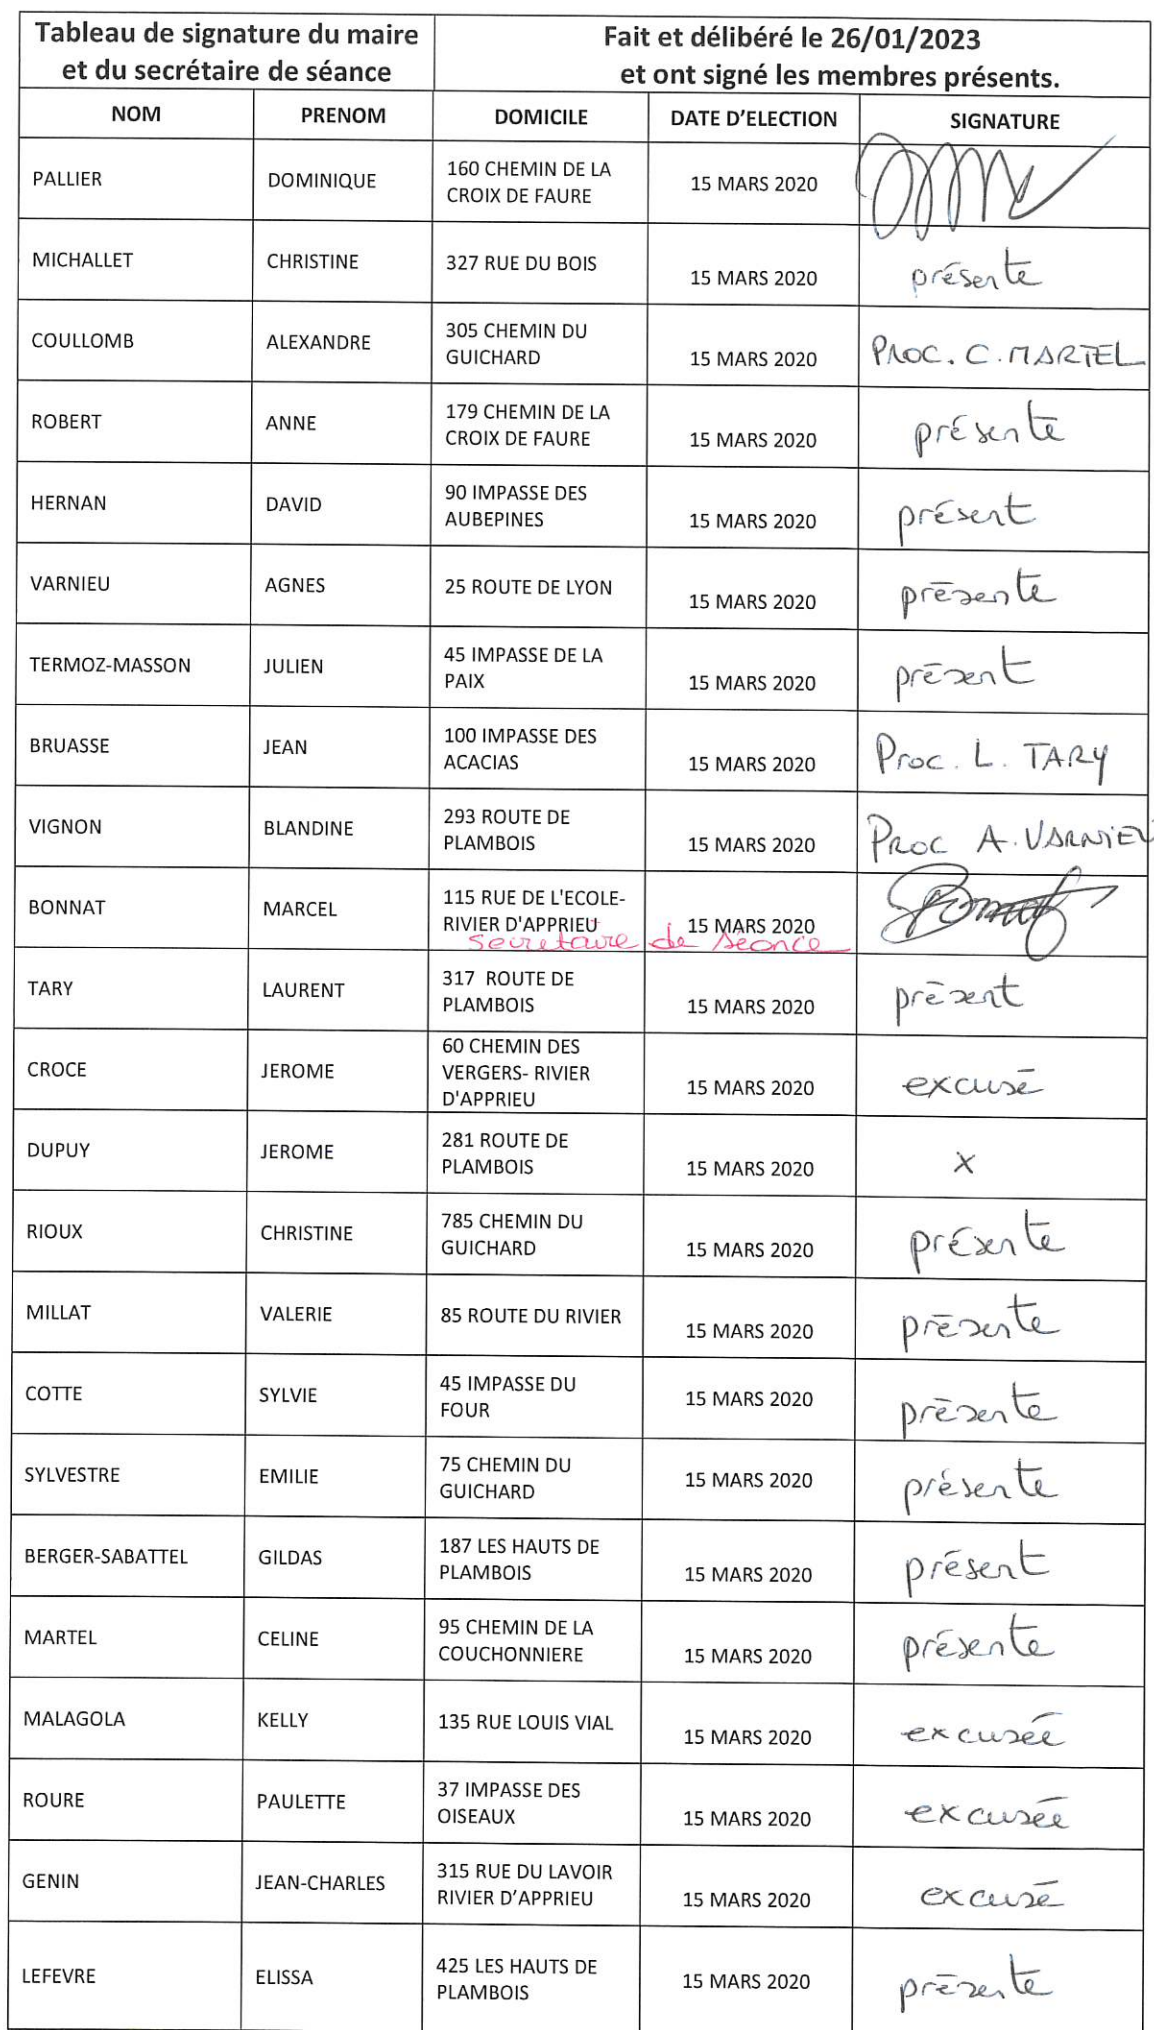 Tableau de signature du maire
et du secrétaire de séance
Fait et délibéré le 26/01/2023
et ont signé les membres présents.
NOM PRENOM DOMICILE DATE D'ELECTION SIGNATURE
PALLIER DOMINIQUE 160 CHEMIN DE LA
CROIX DE FAURE 15 MARS 2020
MICHALLET CHRISTINE 327 RUE DU BOIS 15 MARS 2020 présente
COULLOMB ALEXANDRE 305 CHEMIN DU
GUICHARD 15 MARS 2020 PROC. C. MARTEL
ROBERT ANNE 179 CHEMIN DE LA
CROIX DE FAURE 15 MARS 2020 présente
HERNAN DAVID 90 IMPASSE DES
AUBEPINES 15 MARS 2020 présent
VARNIEU AGNES 25 ROUTE DE LYON 15 MARS 2020 présente
TERMOZ-MASSON JULIEN 45 IMPASSE DE LA
PAIX 15 MARS 2020 présent
BRUASSE JEAN 100 IMPASSE DES
ACACIAS 15 MARS 2020 Proc. L. TARY
VIGNON BLANDINE 293 ROUTE DE
PLAMBOIS 15 MARS 2020 PROC A. VARNIEU
BONNAT MARCEL 115 RUE DE L'ECOLE-
RIVIER D'APPRIEU 15 MARS 2020
secretaire de séance
TARY LAURENT 317 ROUTE DE
PLAMBOIS 15 MARS 2020 présent
CROCE JEROME 60 CHEMIN DES
VERGERS- RIVIER
D'APPRIEU 15 MARS 2020 excusé
DUPUY JEROME 281 ROUTE DE
PLAMBOIS 15 MARS 2020 x
RIOUX CHRISTINE 785 CHEMIN DU
GUICHARD 15 MARS 2020 présente
MILLAT VALERIE 85 ROUTE DU RIVIER 15 MARS 2020 présente
COTTE SYLVIE 45 IMPASSE DU
FOUR 15 MARS 2020 présente
SYLVESTRE EMILIE 75 CHEMIN DU
GUICHARD 15 MARS 2020 présente
BERGER-SABATTEL GILDAS 187 LES HAUTS DE
PLAMBOIS 15 MARS 2020 présent
MARTEL CELINE 95 CHEMIN DE LA
COUCHONNIERE 15 MARS 2020 présente
MALAGOLA KELLY 135 RUE LOUIS VIAL 15 MARS 2020 excusée
ROURE PAULETTE 37 IMPASSE DES
OISEAUX 15 MARS 2020 excusée
GENIN JEAN-CHARLES 315 RUE DU LAVOIR
RIVIER D'APPRIEU 15 MARS 2020 excusé
LEFEVRE ELISSA 425 LES HAUTS DE
PLAMBOIS 15 MARS 2020 présente